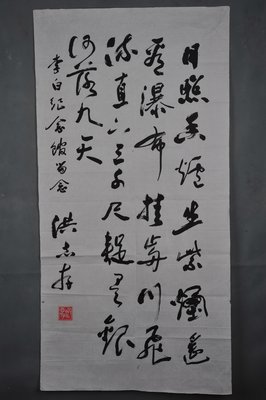 日照香炉生紫烟遥
看瀑布挂前川飞
流直下三千尺疑是银
河落九天
李白纪念馆留念
洪志存